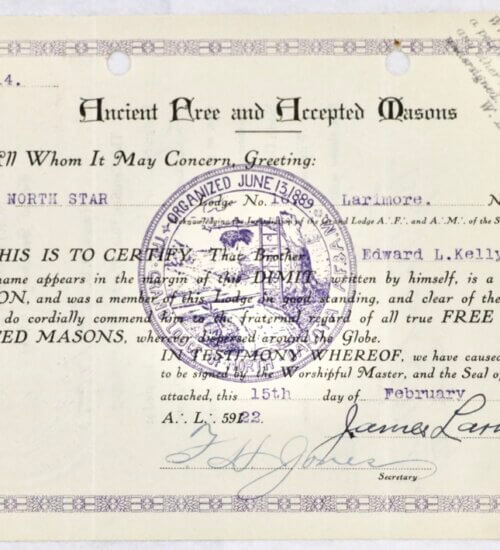 4.
Ancient Free and Accepted Masons
All Whom It May Concern, Greeting:
NORTH STAR Lodge No. Larimore. N
of the Grand Lodge A∴F∴ and A∴M∴ of the S
HIS IS TO CERTIFY, That Brother Edward L.Kelly
name appears in the margin of this DIMIT, written by himself, is a
ON, and was a member of this Lodge in good standing, and clear of the
do cordially commend him to the fraternal regard of all true FREE
TED MASONS, wherever dispersed around the Globe.
IN TESTIMONY WHEREOF, we have caused
to be signed by the Worshipful Master, and the Seal of
attached, this 15th day of February
A∴ L∴ 5922.
James
F H Jones
Secretary
ORGANIZED JUNE 13, 1889